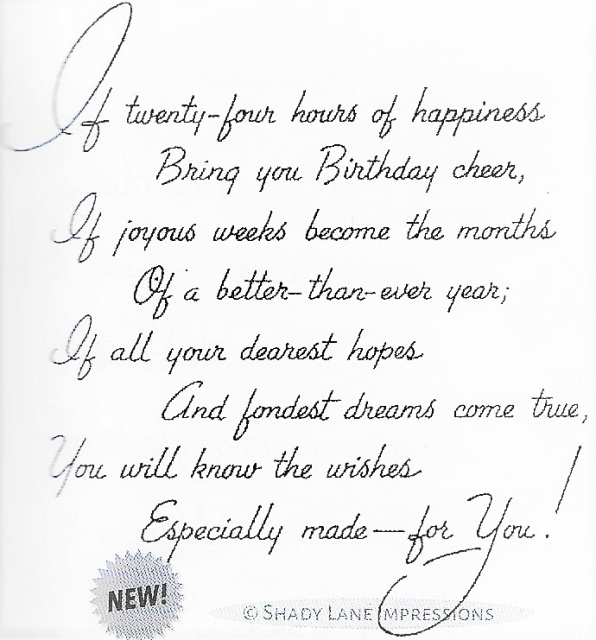 If twenty-four hours of happiness
Bring you Birthday cheer,
If joyous weeks become the months
Of a better-than-ever year;
If all your dearest hopes
And fondest dreams come true,
You will know the wishes
Especially made—for You!
NEW!
© SHADY LANE IMPRESSIONS